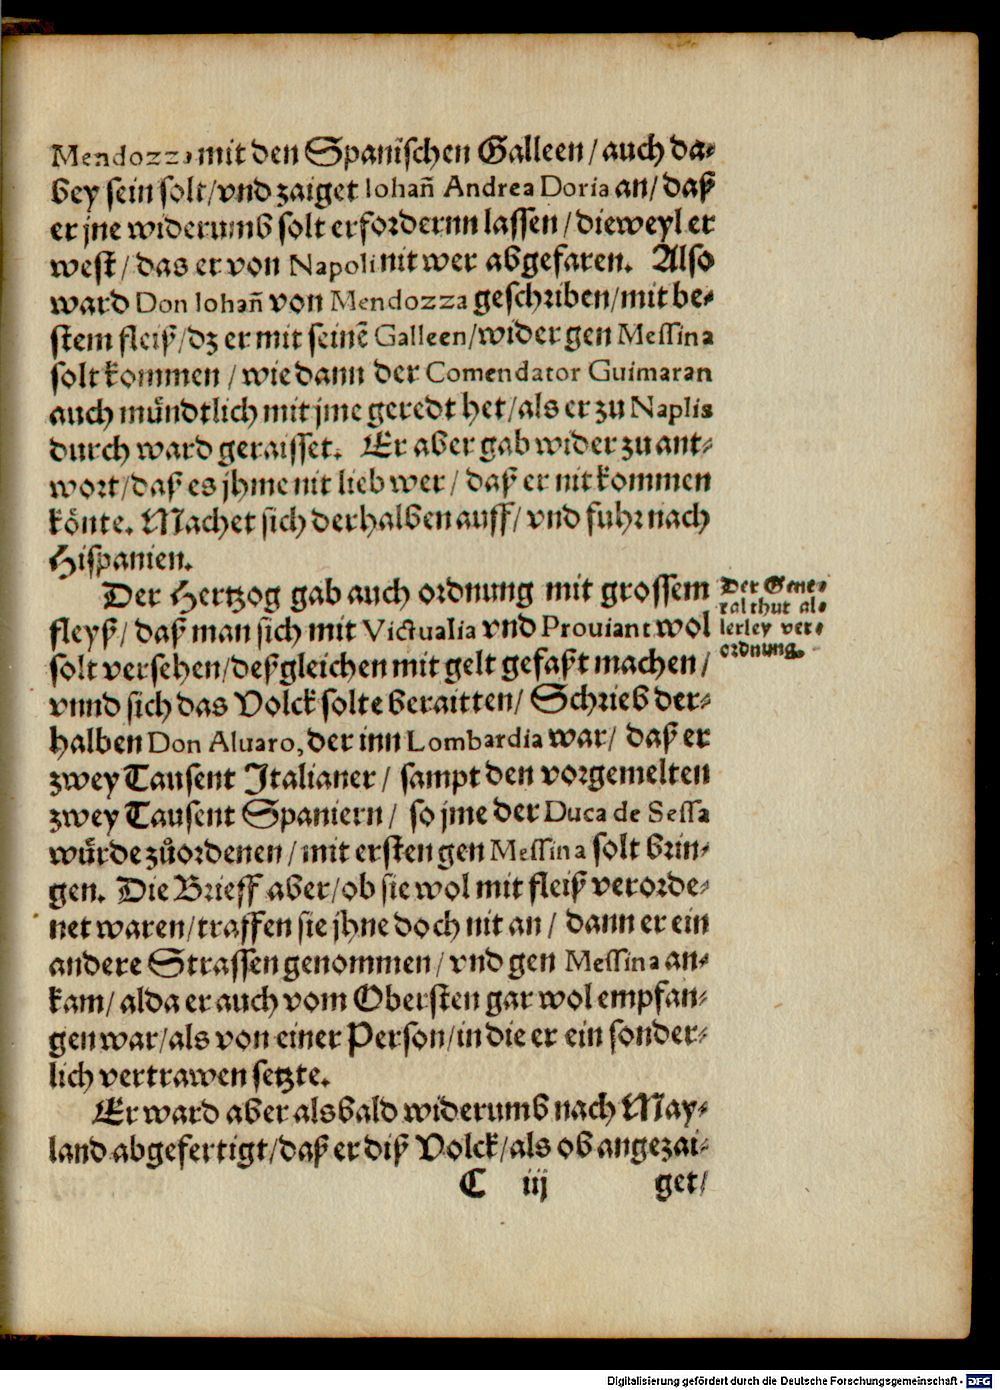 Mendozza mit den Spanischen Galleen / auch da-
bey sein solt / vnd zaiget Iohañ Andrea Doria an / daß
er jne widerumb solt erfordernn lassen / dieweyl er
west / das er von Napoli nit wer abgefaren. Also
ward Don Iohañ von Mendozza geschriben / mit be-
stem fleiß / dz er mit seinẽ Galleen / wider gen Messina
solt kommen / wie dann der Comendator Guimaran
auch mündtlich mit jme geredt het / als er zu Naplis
durch ward geraisset. Er aber gab wider zu ant-
wort / daß es jhme nit lieb wer / daß er nit kommen
könte. Machet sich derhalben auff / vnd fuhr nach
Hispanien.
Der Hertzog gab auch ordnung mit grossem
fleyß / daß man sich mit Victualia vnd Prouiant wol
solt versehen / deßgleichen mit gelt gefaßt machen /
vnnd sich das Volck solte beraitten / Schrieb der-
halben Don Aluaro, der inn Lombardia war / daß er
zwey Tausent Italianer / sampt den vorgemelten
zwey Tausent Spaniern / so jme der Duca de Sessa
würde zůordenen / mit ersten gen Messina solt brin-
gen. Die Brieff aber / ob sie wol mit fleiß verorde-
net waren / traffen sie jhne doch nit an / dann er ein
andere Strassen genommen / vnd gen Messina an-
kam / alda er auch vom Obersten gar wol empfan-
gen war / als von einer Person / in die er ein sonder-
lich vertrawen setzte.
Er ward aber alsbald widerumb nach May-
land abgefertigt / daß er diß Volck / als ob angezai-
C iij get /
Der Gene-
ral thut al-
lerley ver-
ordnung.
Digitalisierung gefördert durch die Deutsche Forschungsgemeinschaft - DFG